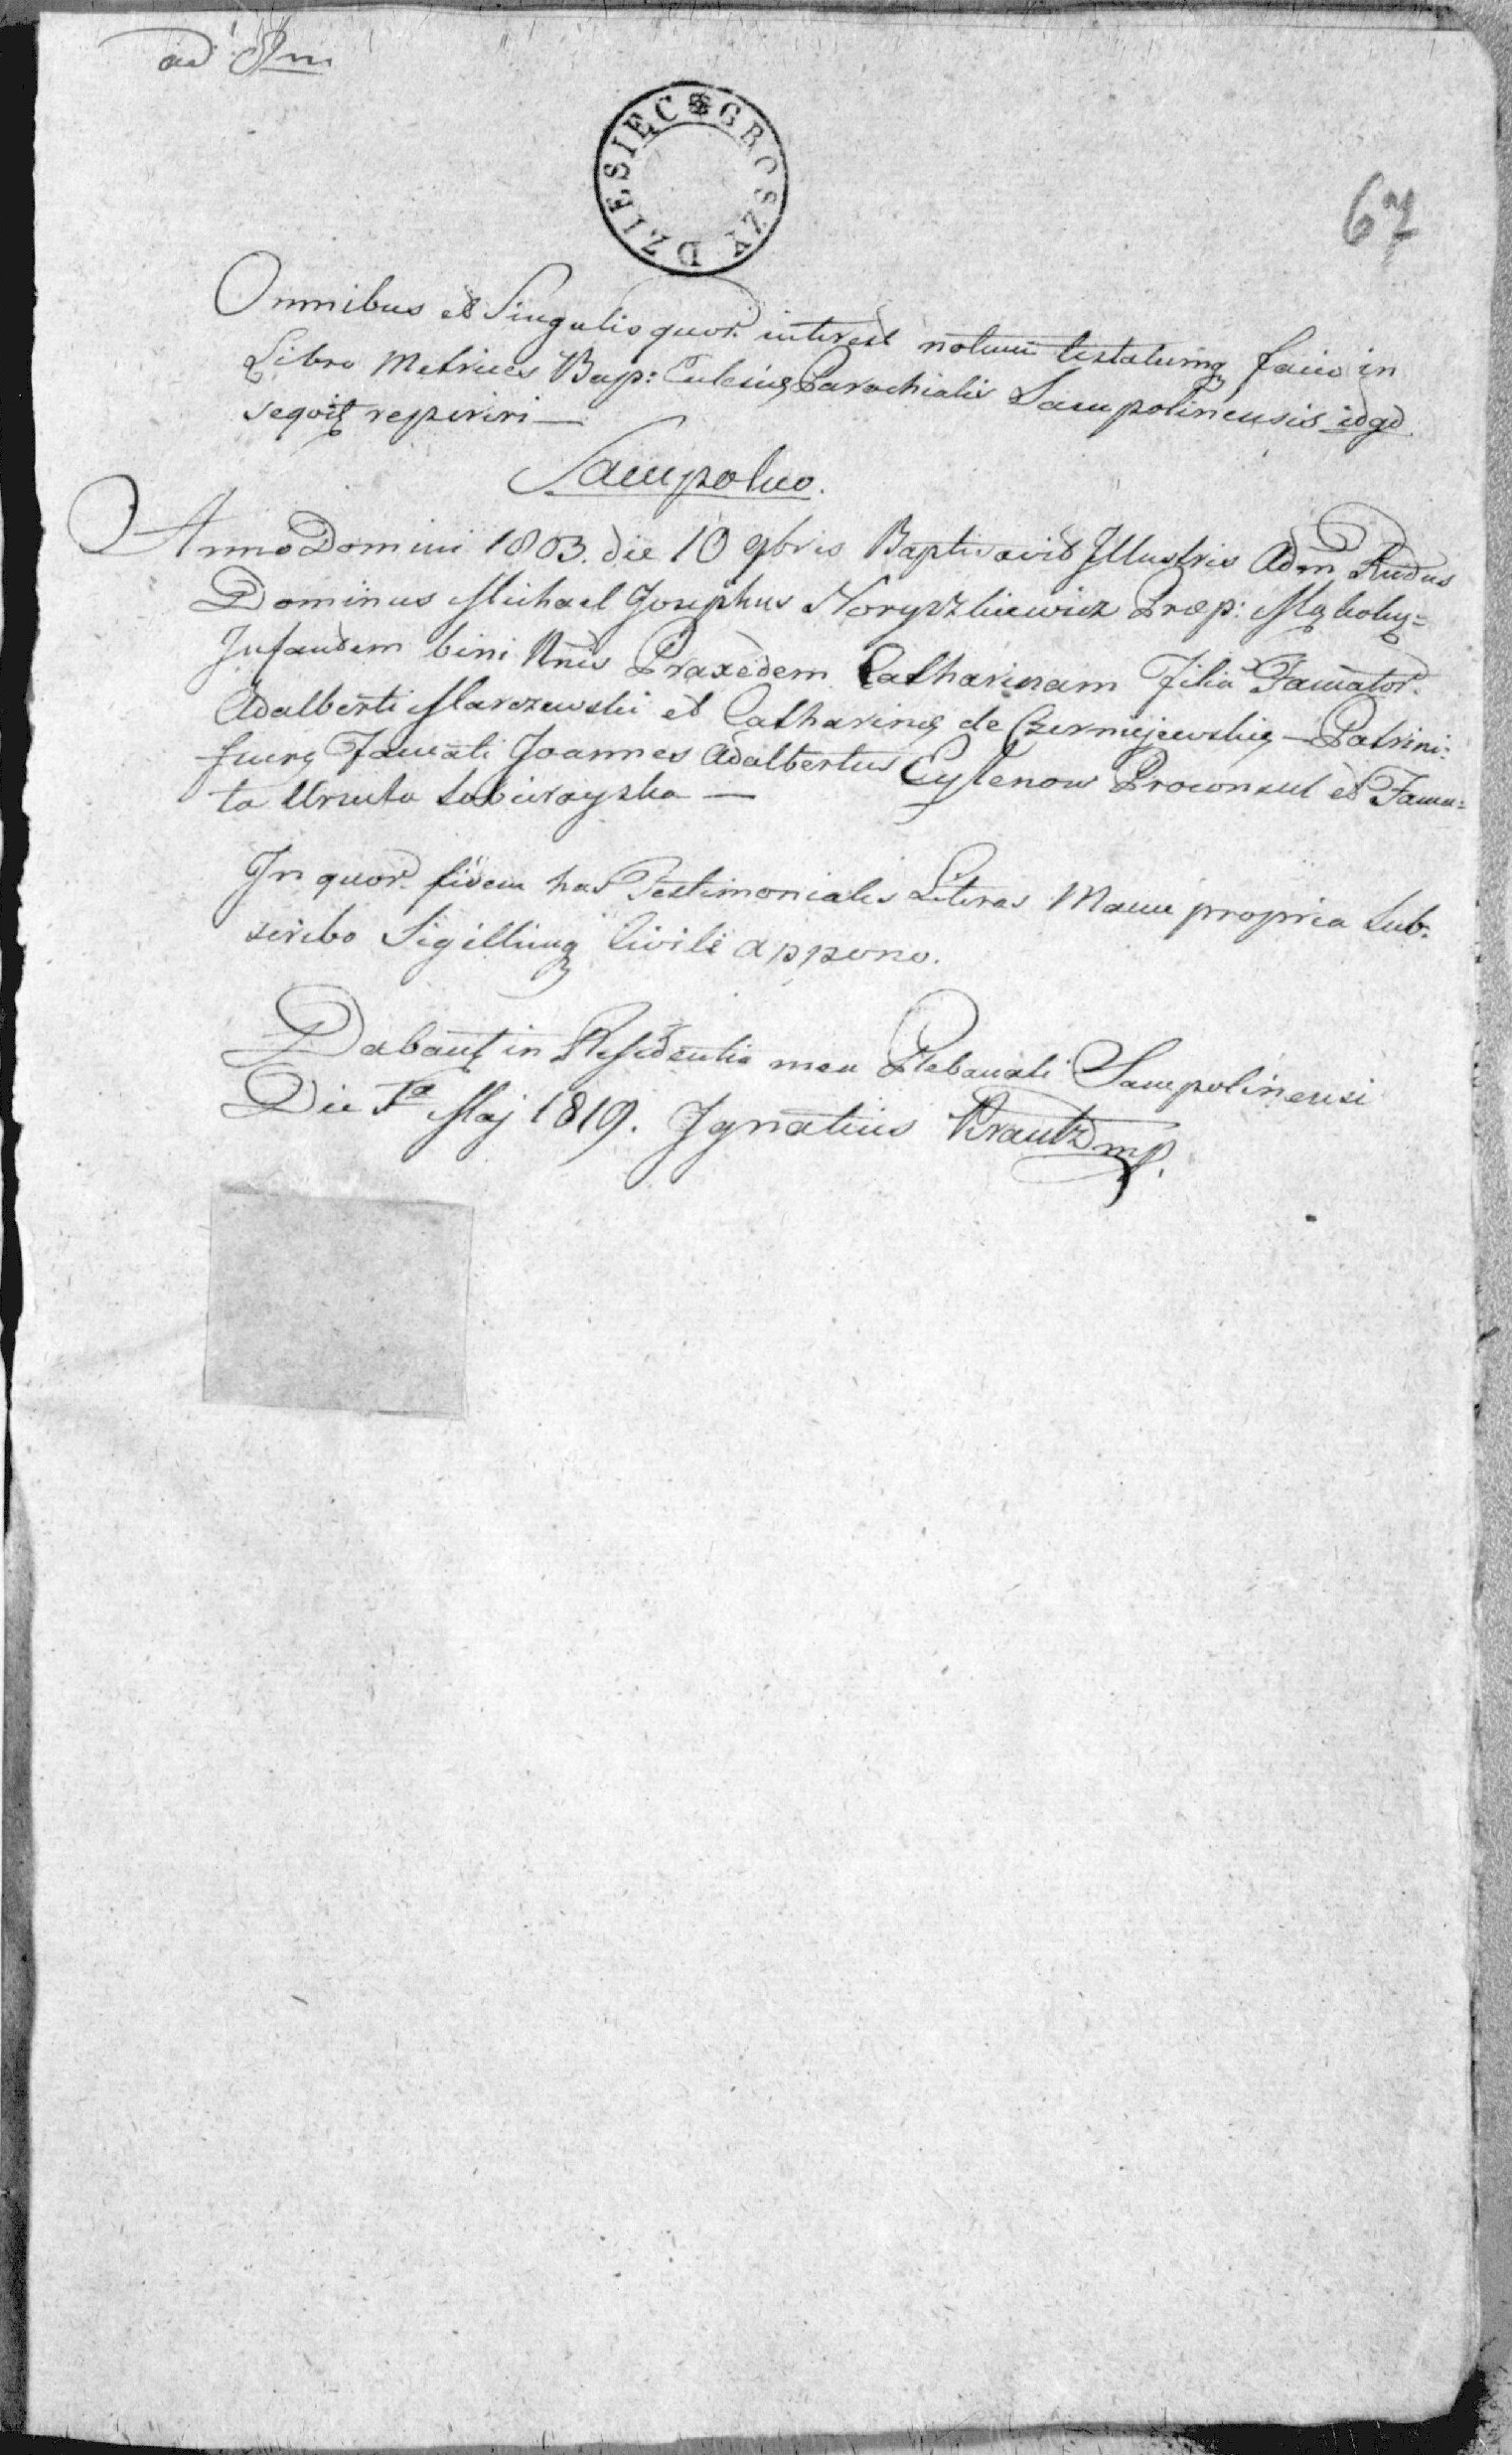 ad 8m
DZIESIĘC GROSZY
67
Omnibus et Singulis quor. interest notum testatumq facio in
Libro Metrices Bap: Eclesiæ Parochialis Sampolinensis idqd
seqvit̃ repperiri —
Sampolno.
Anno Domini 1803. die 10 9bris Baptisavit Illustris Adm Rndus
Dominus Michael Josephus Noryszkiewicz Præp: Mąkoly=
Infantem bini Nnis Praxedem Catharinam Filia Famator.
Adalberti Marczewski et Catharinæ de Czermijewskie — Patrini:
fuerę Famati Joannes Adalbertus Cylenow Proconsul et Fama=
ta Ursula
In quor. fidem has Testimoniales Literas Manu propria Sub:
scribo Sigillumq Civile appono.
Dabant in Residentia mea Plebanali Sampolinensi
Die 1a Maj 1819. Ignatius Krautz mp.